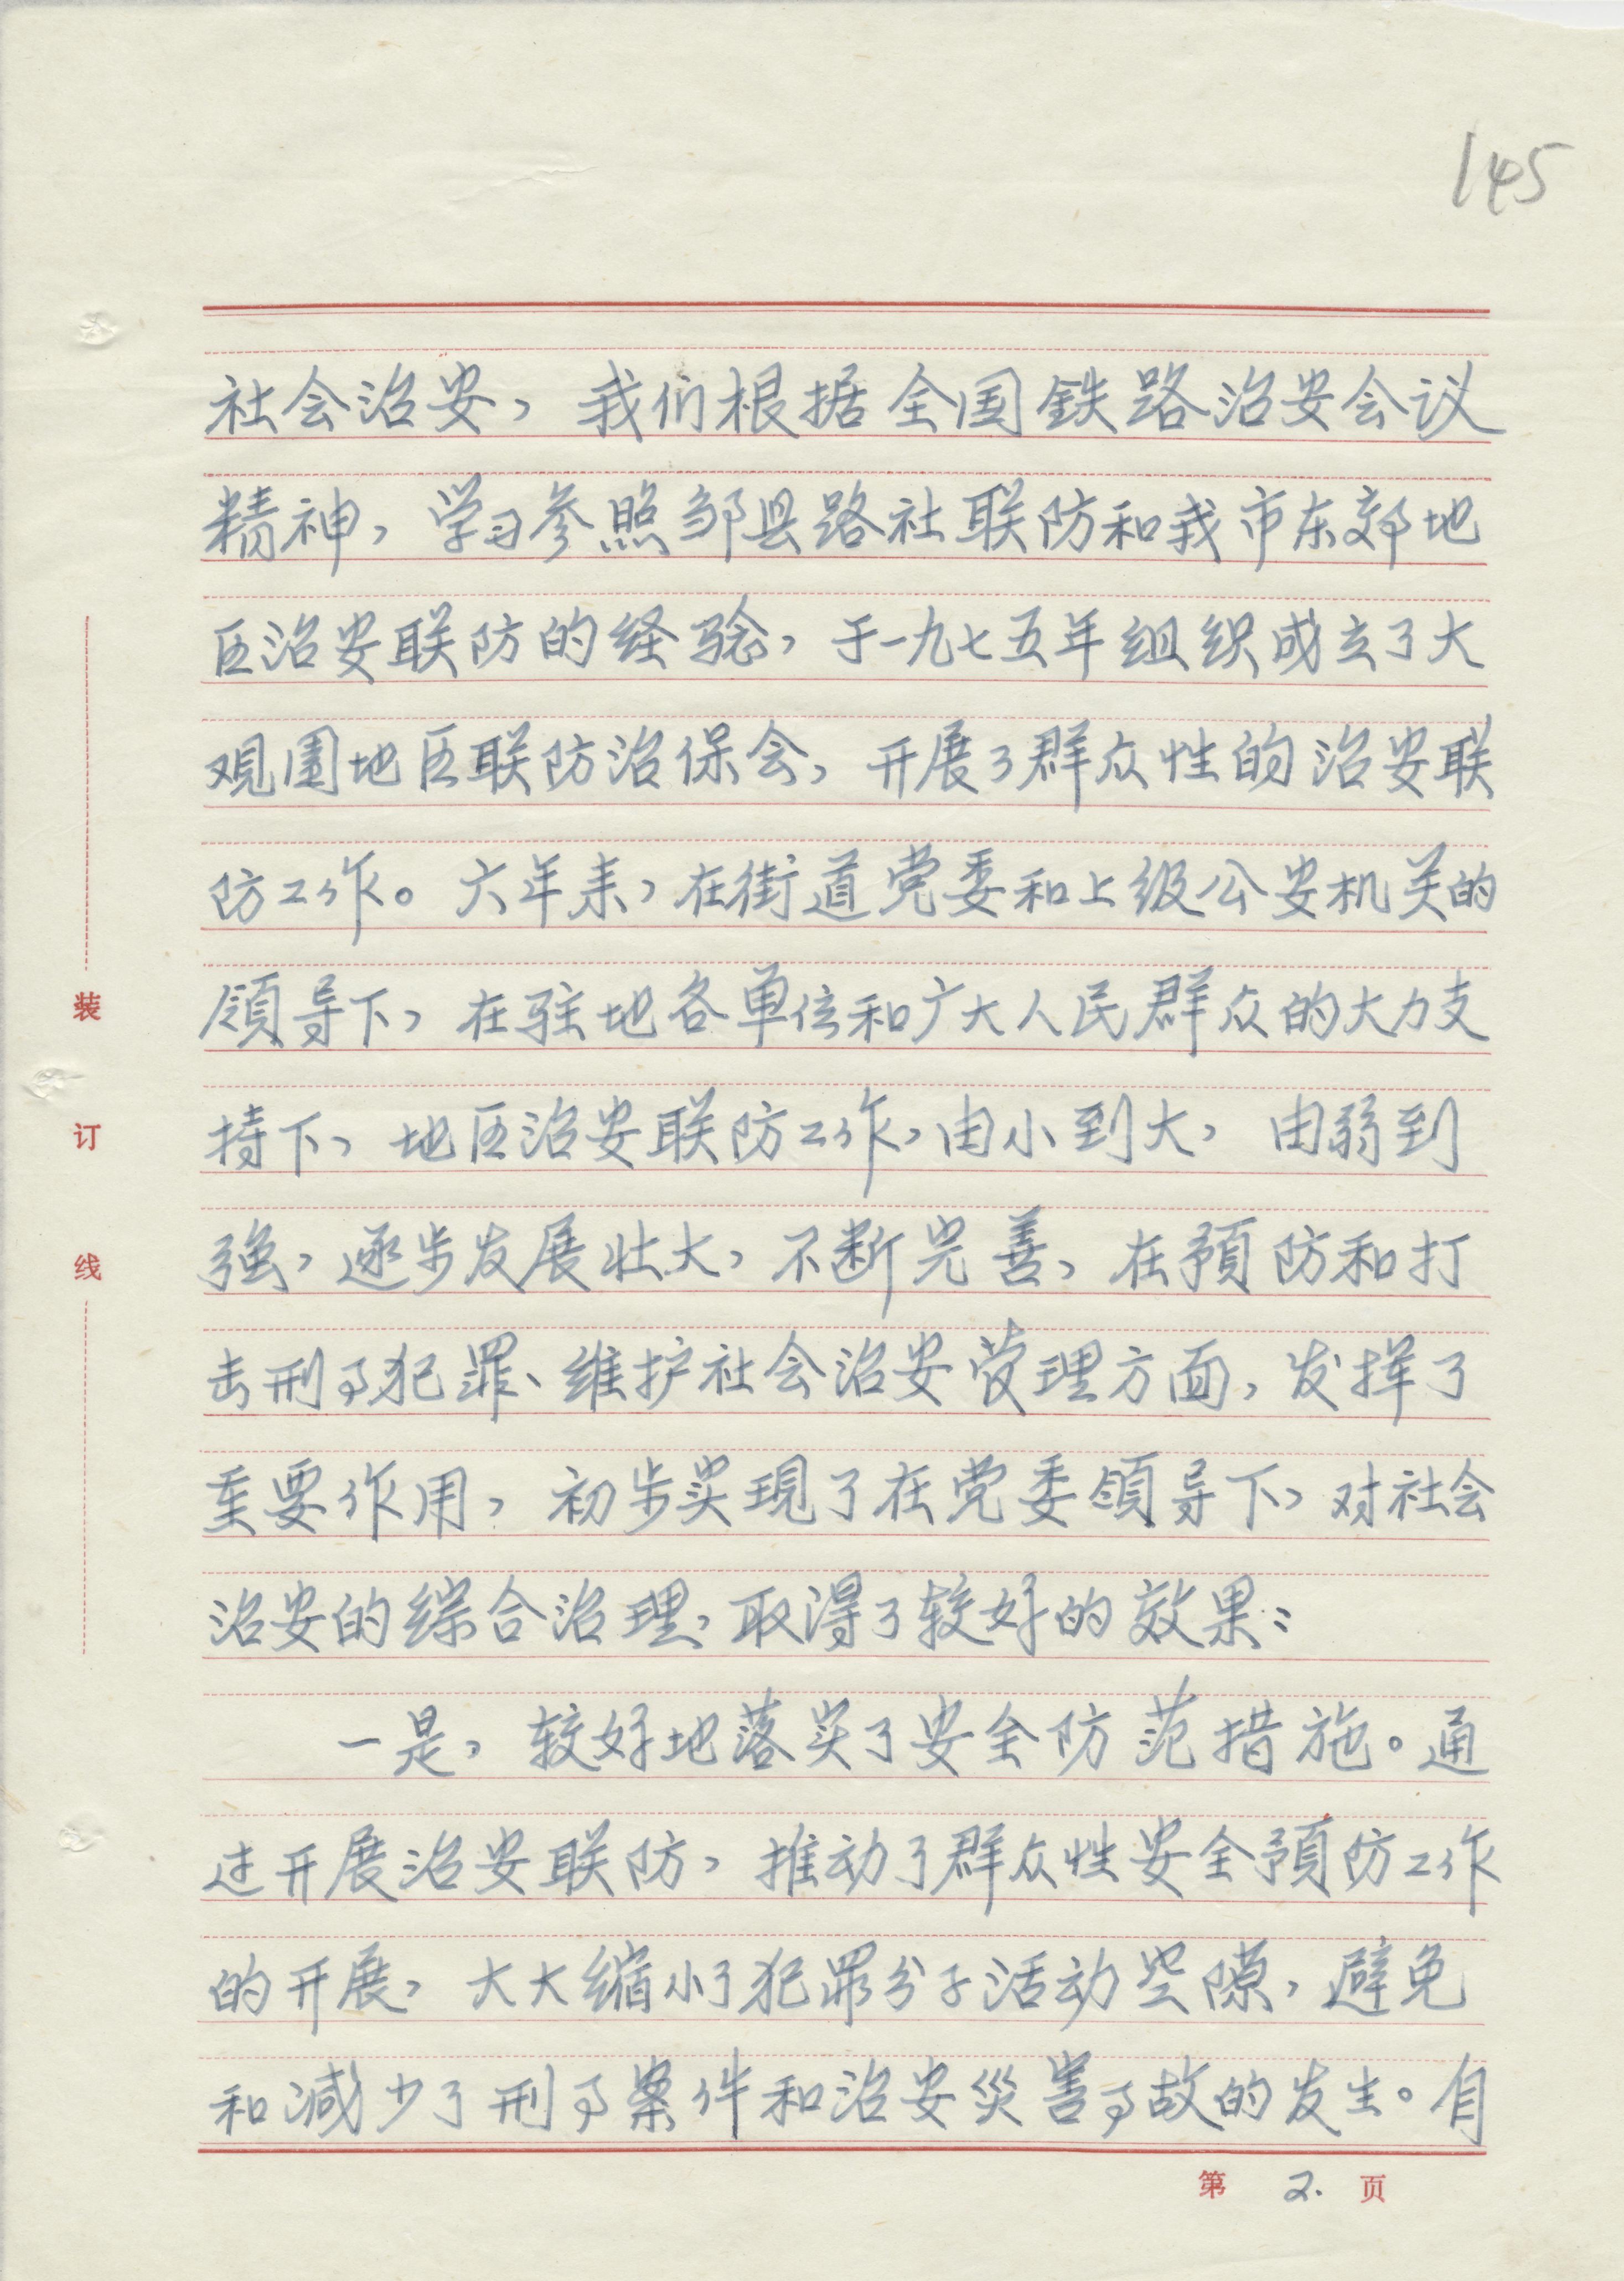 145
社会治安，我们根据全国鉄路治安会议
精神，学习参照邹县路社联防和我市东郊地
区治安联防的经验，于一九七五年组织成立了大
观園地区联防治保会，开展了群众性的治安联
防工作。六年来，在街道党委和上级公安机关的
領导下，在驻地各单位和广大人民群众的大力支
持下，地区治安联防工作，由小到大，由弱到
強，逐步发展壮大，不断完善，在預防和打
击刑事犯罪、维护社会治安管理方面，发挥了
重要作用，初步实現了在党委領导下，对社会
治安的综合治理，取得了较好的效果：
一是，较好地落实了安全防范措施。通
过开展治安联防，推动了群众性安全預防工作
的开展，大大缩小了犯罪分子活动空隙，避免
和减少了刑事案件和治安災害事故的发生。自
装
订
线
第 2. 页